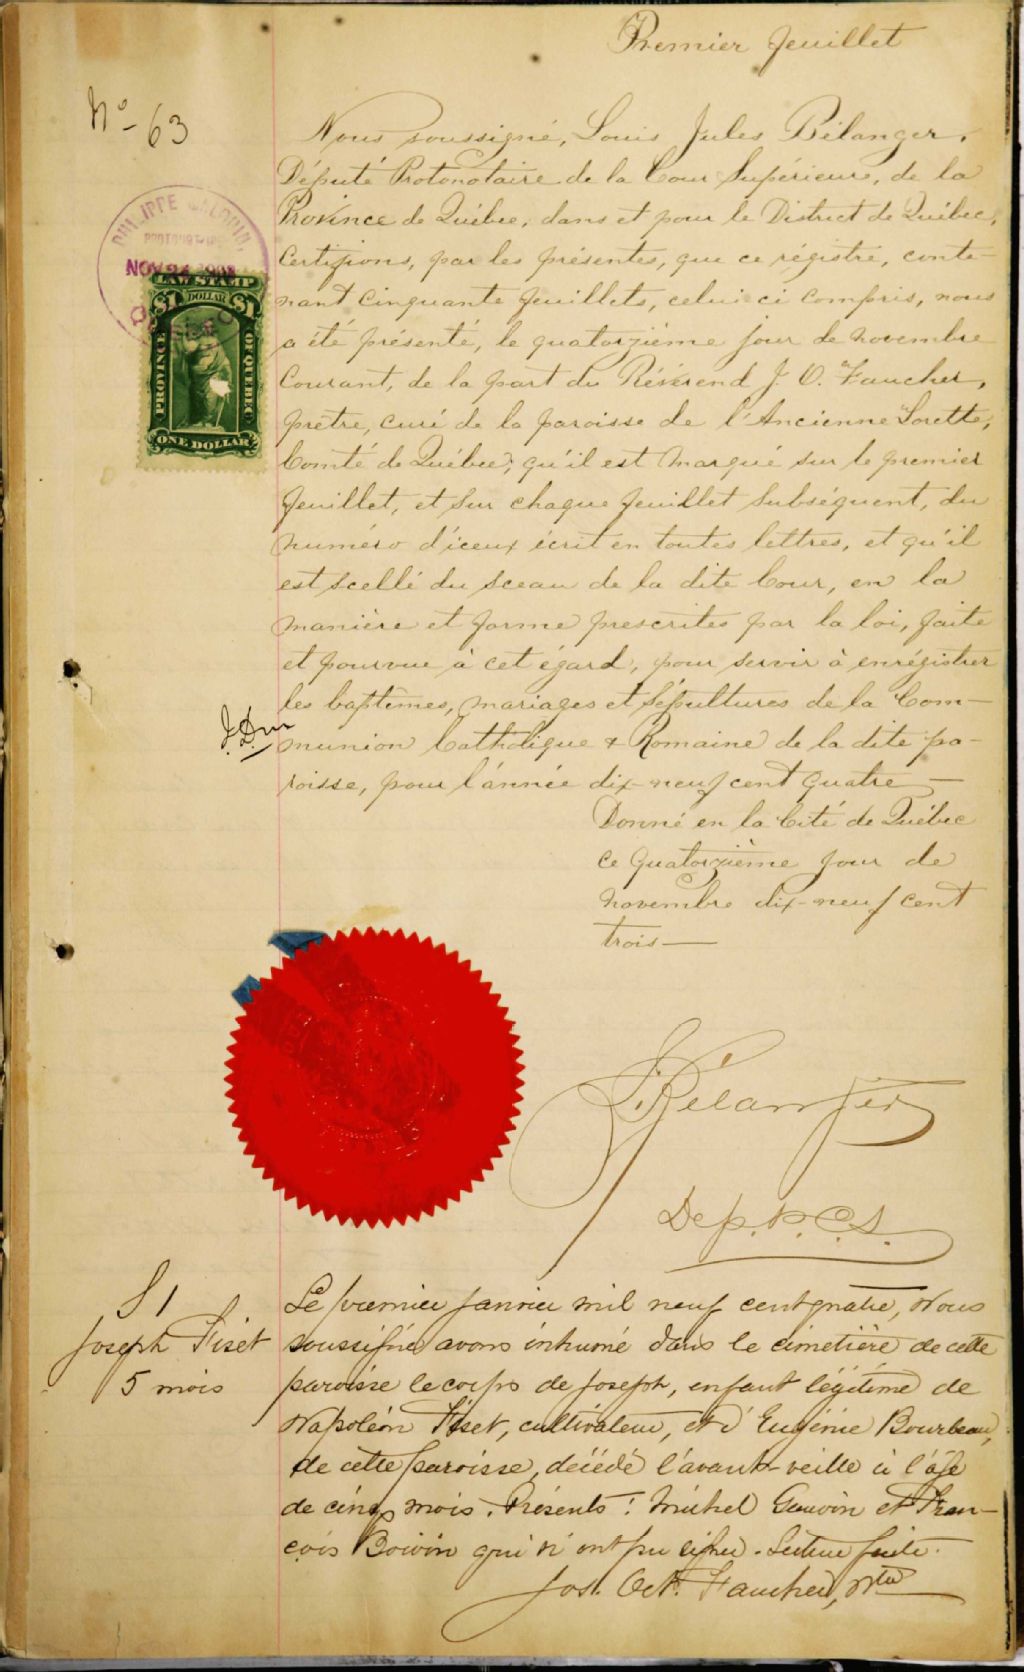 Premier feuillet
No- 63
Nous soussigné, Louis Jules Bélanger,
Député Protonotaire de la Cour Supérieure, de la
Province de Québec, dans et pour le District de Québec,
Certifions, par les présentes, que ce régistre, conte-
nant cinquante feuillets, celui ci compris, nous
a été présenté, le quatorzième jour de novembre
Courant, de la part du Révérend J. O. Faucher,
prêtre, curé de la paroisse de l'Ancienne Lorette,
Comté de Québec, qu'il est marqué sur le premier
feuillet, et sur chaque feuillet subséquent, du
numéro d'iceux écrit en toutes lettres, et qu'il
est scellé du sceau de la dite Cour, en la
manière et forme prescrites par la loi, faite
et pourvue à cet égard, pour servir à enrégistrer
les baptêmes, mariages et sépultures de la Com-
munion Catholique & Romaine de la dite pa-
roisse, pour l'année dix-neuf cent quatre —
Donné en la Cité de Québec
ce quatorzième jour de
novembre dix-neuf cent
trois —
LAW STAMP
$1 DOLLAR $1
PROVINCE OF QUEBEC
ONE DOLLAR
Bélanger
Dep. P. C. S.
S 1
Joseph Fiset
5 mois
Le premier janvier mil neuf cent quatre, Nous
soussigné avons inhumé dans le cimetière de cette
paroisse le corps de Joseph, enfant légitime de
Napoléon Fiset, cultivateur, et d'Eugénie Bourbeau,
de cette paroisse, décédé l'avant-veille à l'âge
de cinq mois. Présents: Michel Gauvin et Fran-
çois Boivin qui n'ont pu signer. Lecture faite.
Jos. Oct. Faucher, Ptre